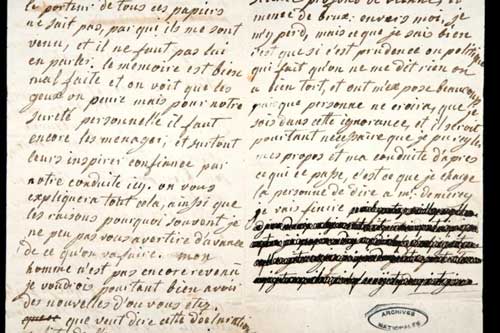 le porteur de tous ces papiers
ne sait pas, par qui ils me sont
venu, et il ne faut pas lui
en parler. le memoire est bien
mal faite et on voit que les
geux on peure mais pour notre
sureté personnelle il faut
encore les menager, et surtout
leurs inspirer confiance par
notre conduite icy. on vous
expliquera tout cela, ainsi que
les raisons pourquoi souvent je
ne peu pas vous avertire d'avance
de ce qu'on va faire. mon
homme n'est pas encore revenu
je voudrois pourtant bien avoir
des nouvelles d'ou vous êtes.
que veut dire cette déclaration
silence profond de
de brux. envers moi, je
m'y perd, mais ce que je sais bien
c'est que si c'est prudence ou politique
qui fait qu'on ne me dit rien on
a bien tort, et on m'expose beaucoup
puisque personne ne croira, que je
sois dans cette ignorance, et il seroit
pourtant nécessaire que je
mes propos et ma conduite d'après
ce qui ce passe, c'est ce que je charge
la personne de dire a mr.
je vais finire
ARCHIVES
NATIONALES